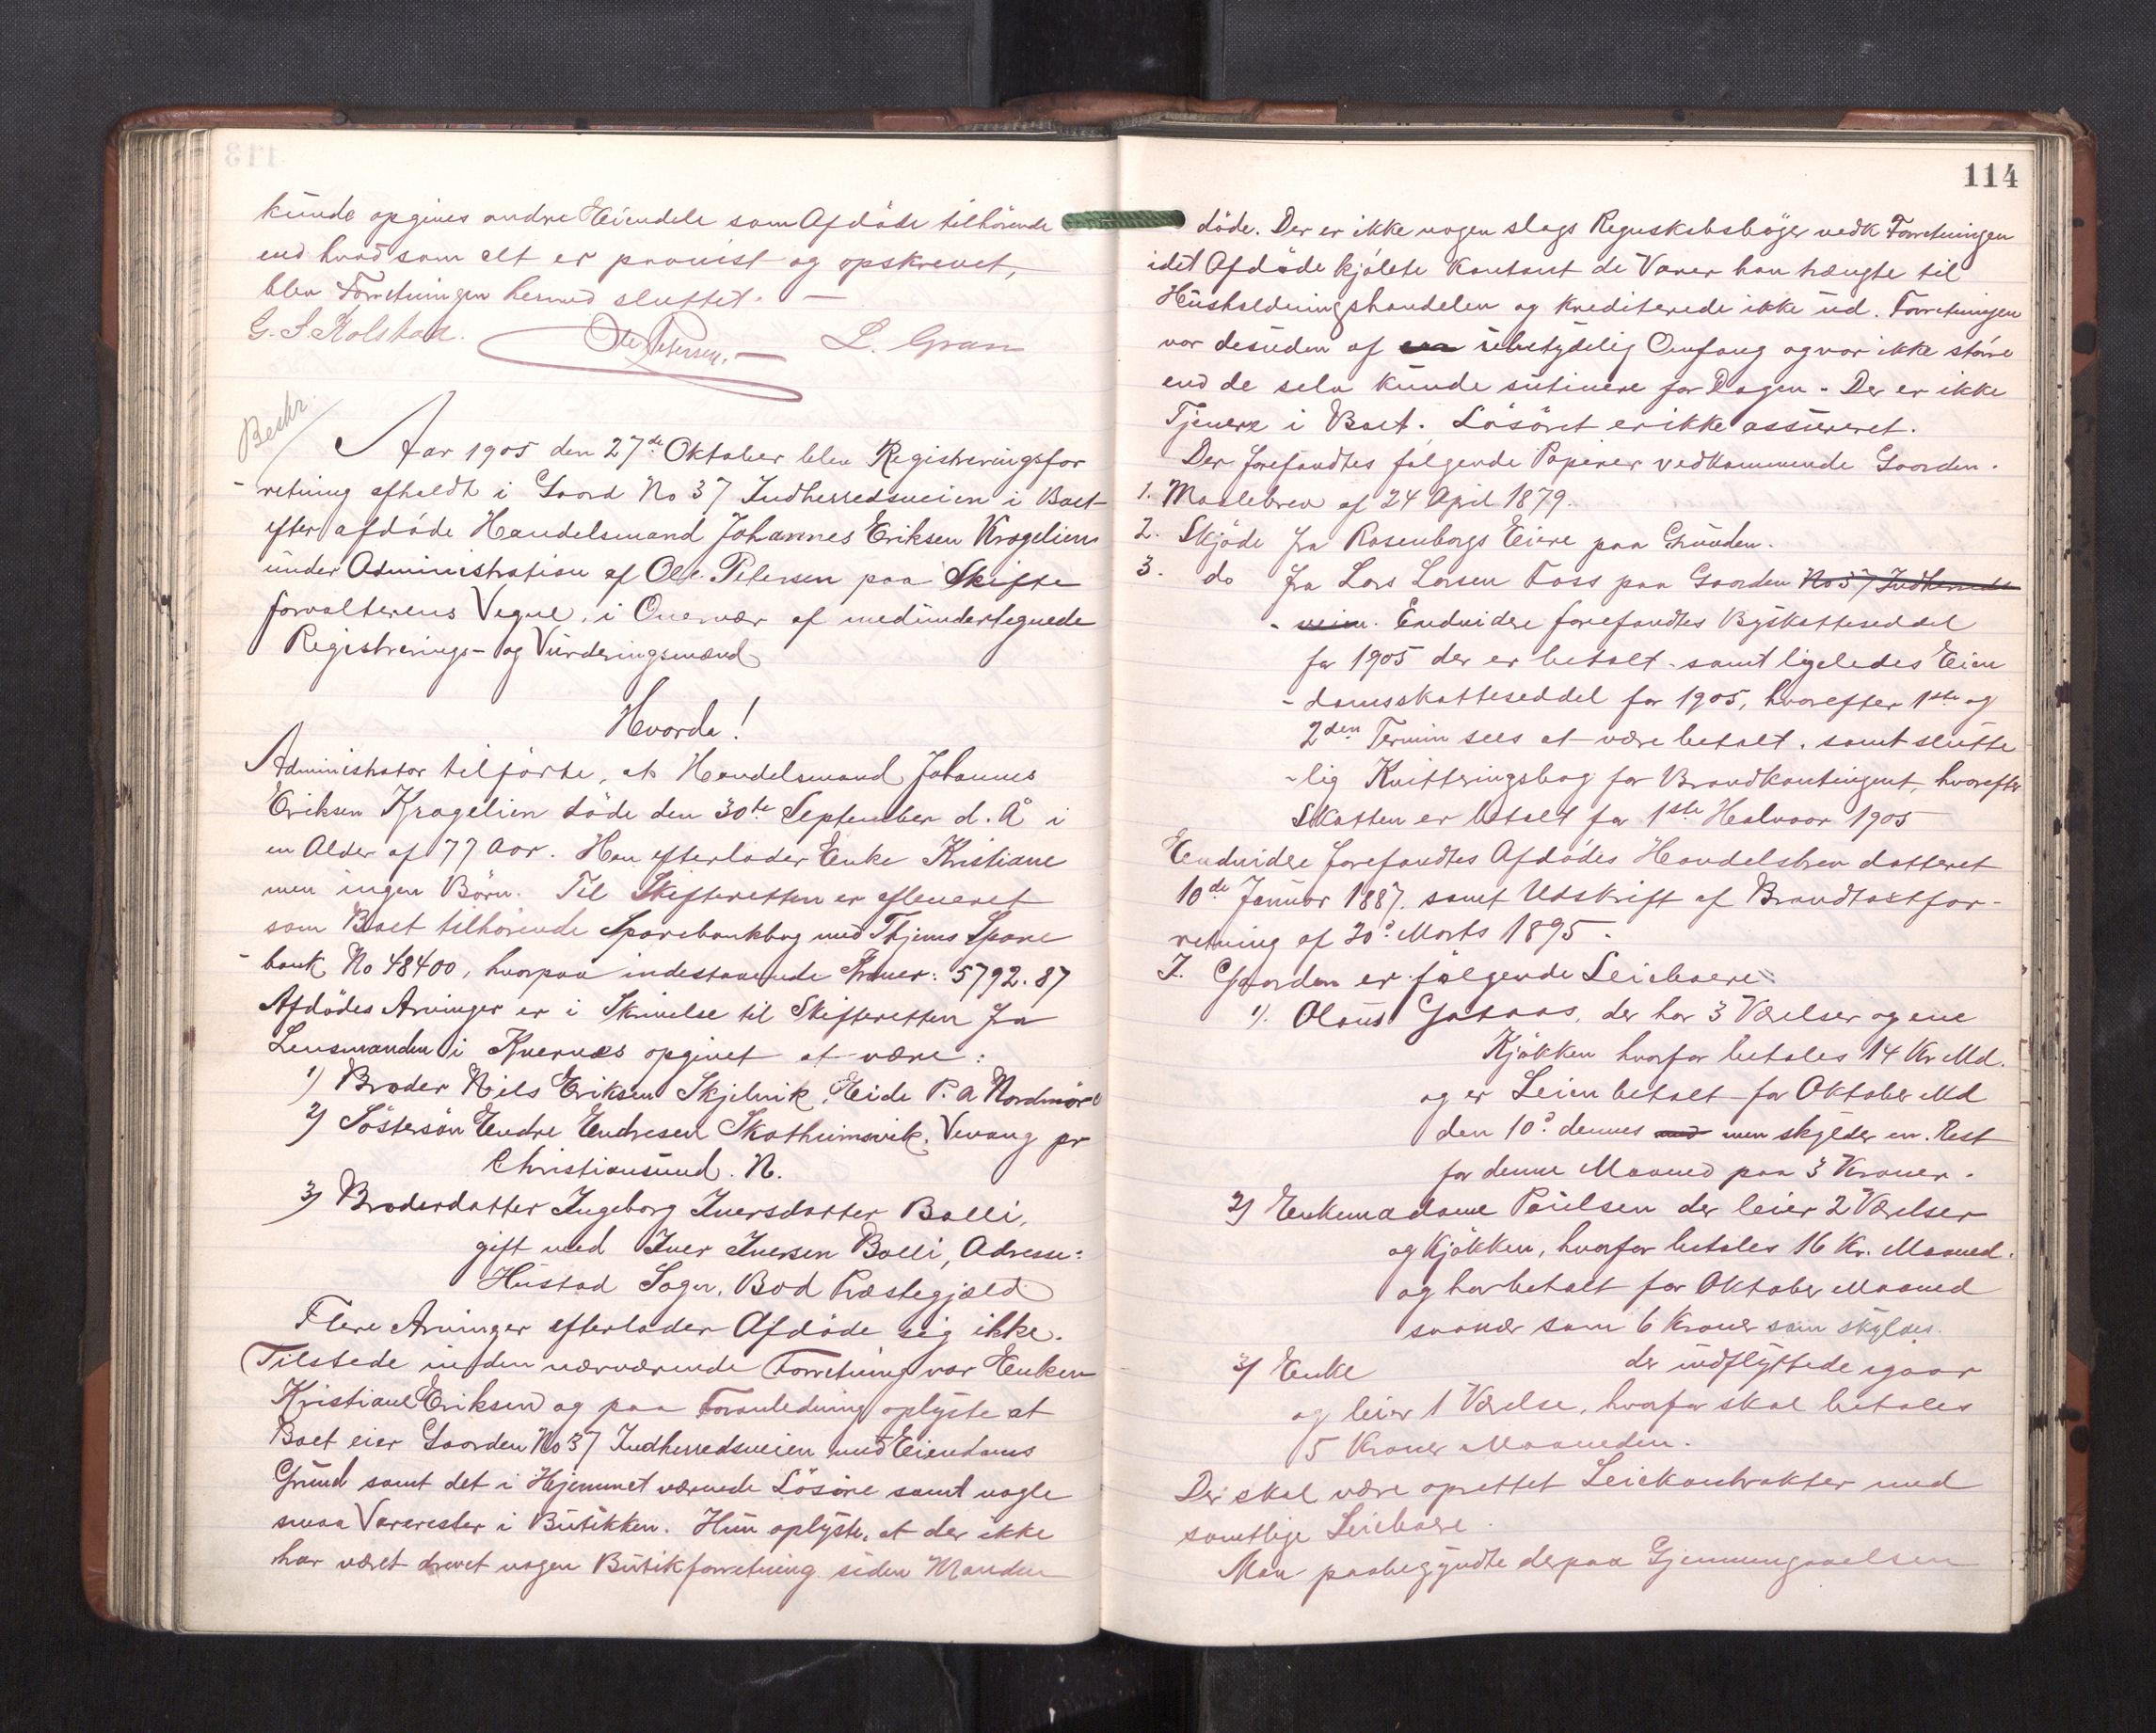 kunde opgives andre Eiendele som Afdöde tilhörende
end hvad som alt er paavist og opskrevet,
blev Forretningen hermed sluttet. —
G. S. Kolstad. Ole Petersen. — L. Gran
Beskr.
Aar 1905 den 27de Oktober blev Registreringsfor
-retning afholdt i Gaard No 37 Indherredsveien i Boet
efter afdöde Handelsmand Johannes Eriksen Kragelien
under Administration af Ole Petersen paa Skifte
forvalterens Vegne, i Overvær af medundertegnede
Registrerings- og Vurderingsmænd
Hvorda!
Administrator tilförte, at Handelsmand Johannes
Eriksen Kragelien döde den 30te September d. Å i
en Alder af 77 Aar. Han efterlader Enke Kristiane
men ingen Börn. Til Skifteretten er afleveret
som Boet tilhörende Sparebankbog med Thjems Spare
-bank No 48400, hvorpaa indestaaende Kroner: 5792.87
Afdödes Arvinger er i Skrivelse til Skifteretten fra
Lensmanden i Kvernæs opgivet at være:
1) Broder Nils Eriksen Skjelvik, Eide P. A Nordmöre
2) Söstersön Endre Endresen Skotheimsvik, Vevang pr
Christiansund. N.
3) Broderdatter Ingeborg Iversdatter Bolli,
gift med Iver Iversen Bolli, Adresse:
Hustad Sogn, Bod Præstegjæld
Flere Arvinger efterlader Afdöde sig ikke.
Tilstede under nærværende Forretning var Enken
Kristiane Eriksen og paa Foranledning oplyste at
Boet eier Gaarden No 37 Indherredsveien med Eiendoms
Grund samt det i Hjemmet værende Lösöre samt nogle
smaa Varerester i Butikken. Hun oplyste, at der ikke
har været drevet nogen Butikforretning siden Manden
114
döde. Der er ikke nogen slags Regnskabsböger vedk Forretningen
idet Afdöde kjöbte kontant de Varer han trængte til
Husholdningshandelen og krediterede ikke ud. Forretningen
var desuden af en ubetydelig Omfang og var ikke större
end de selv kunde sutinere for Dagen. Der er ikke
Tjenere i Boet. Lösöret er ikke assureret.
Der forefandtes fölgende Papirer vedkommende Gaarden.
1. Maalebrev af 24 April 1879.
2. Skjöde fra Rosenborgs Eiere paa Grunden.
3. do fra Lars Larsen Foss paa Gaarden No 37 Indherreds
- veien. Endvidere forefandtes Byskatteseddel
for 1905 der er betalt. samt ligeledes Eien
-domsskatteseddel for 1905, hvorefter 1ste og
2den Termin sees at være betalt. samt slutte
-lig Kvitteringsbog for Brandkontingent, hvorefter
Skatten er betalt for 1ste Halvaar 1905
Endvidere forefandtes Afdödes Handelsbrev datteret
10de Januar 1887. samt Udskrift af Brandtaxtfor-
retning af 20d Marts 1895.
I. Gaarden er fölgende Leieboere
1). Olaus Gataas, der har 3 Værelser og ene
Kjökken hvorfor betales 14 Kr. Md.
og er Leien betalt for Oktober Md
den 10d dennes med men skylder en Rest
for denne Maaned paa 3 Kroner.
2) Enkemadame Paulsen der leier 2 Værelser
og Kjökken, hvorfor betales 16 Kr. Maaned.
og har betalt for Oktober Maaned
saanær som 6 Kroner som skyldes.
3) Enke der indflyttede igaar
og leier 1 Værelse, hvorfor skal betales
5 Kroner Maaneden.
Der skal være oprettet Leiekontrakter med
samtlige Leieboere.
Man paabegyndte derpaa Gjennemgaaelsen